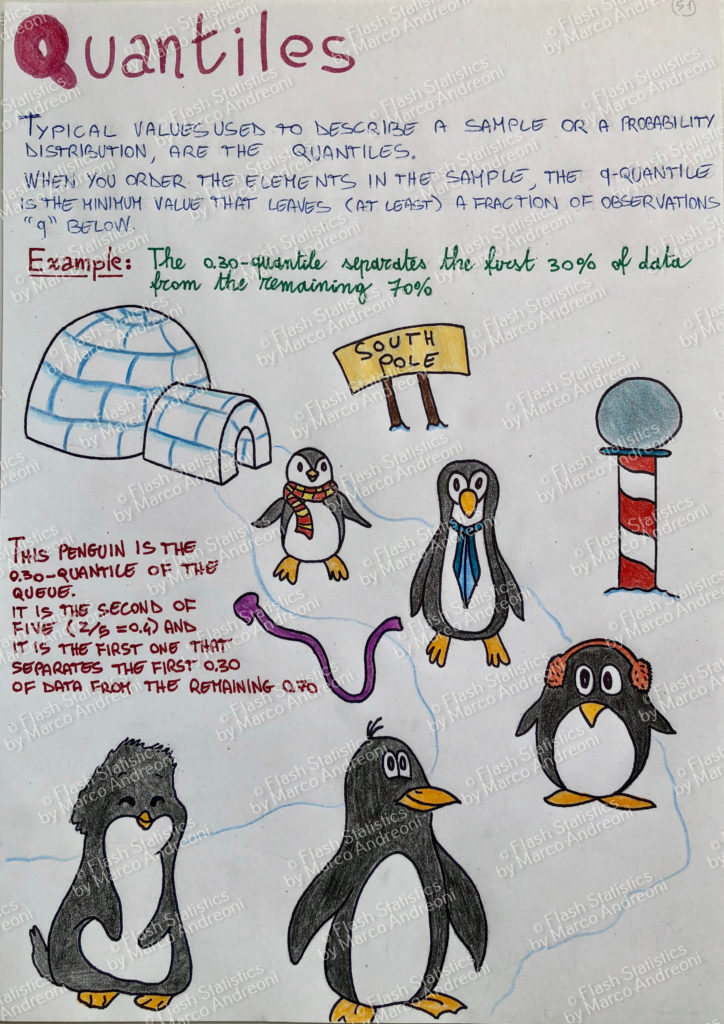 51
Quantiles
TYPICAL VALUES USED TO DESCRIBE A SAMPLE OR A PROBABILITY
DISTRIBUTION, ARE THE QUANTILES.
WHEN YOU ORDER THE ELEMENTS IN THE SAMPLE, THE q-QUANTILE
IS THE MINIMUM VALUE THAT LEAVES (AT LEAST) A FRACTION OF OBSERVATIONS
"q" BELOW.
Example: The 0.30-quantile separates the first 30% of data
from the remaining 70%
SOUTH
POLE
THIS PENGUIN IS THE
0.30-QUANTILE OF THE
QUEUE.
IT IS THE SECOND OF
FIVE (2/5 = 0.4) AND
IT IS THE FIRST ONE THAT
SEPARATES THE FIRST 0.30
OF DATA FROM THE REMAINING 0.70
© Flash Statistics
by Marco Andreoni